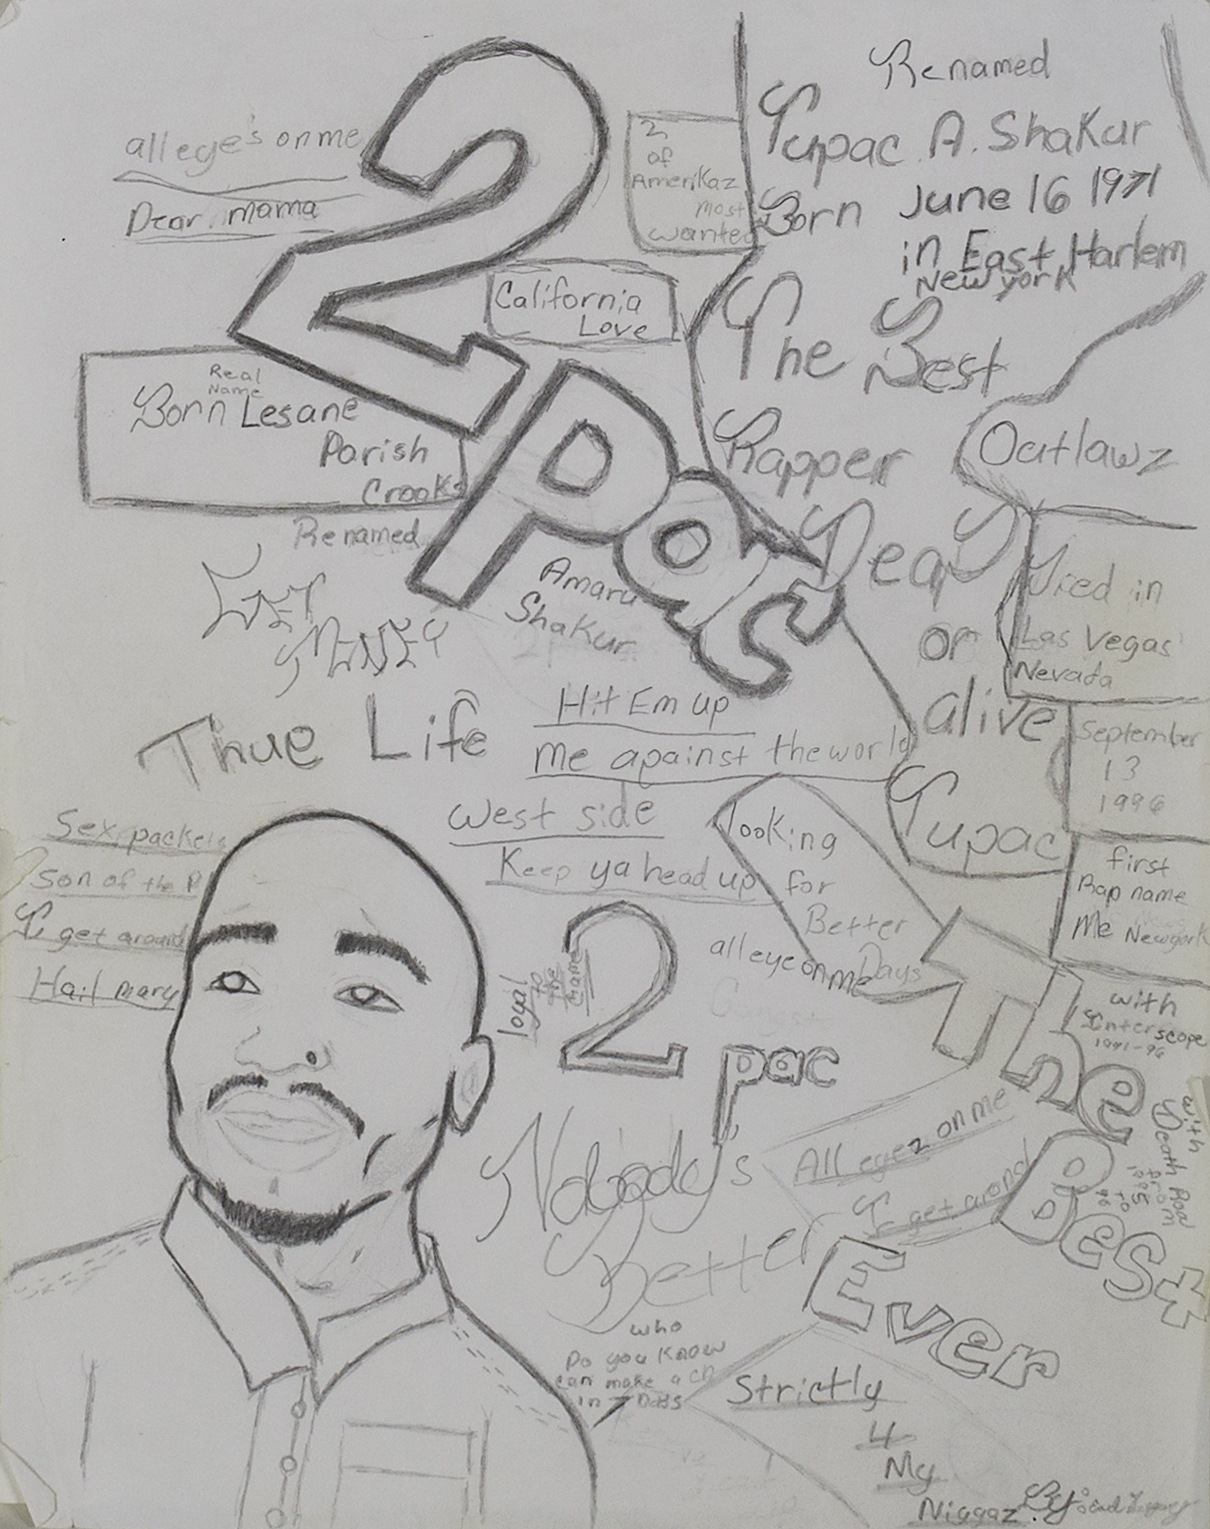 Renamed
Tupac A. Shakur
Born June 16 1971
in East Harlem
New york
all eye's on me
Dear mama
2
of
Amerikaz
most
wanted
California
Love
The Best
Rapper
Dead
or
alive
Tupac
Outlawz
Real
Name
Born Lesane
Parish
Crooks
Renamed
Amaru
Shakur
2Pac
Died in
Las Vegas
Nevada
September
13
1996
first
Rap name
Me Newyork
with
Interscope
1991-96
with
Death Row
from
1995
to
96
Thue Life
Hit Em up
me against the world
West side
Keep ya head up
looking
for
Better
Days
all eye on me
Sex packets
Son of the P
I get around
Hail mary
loyal
to
the
Game
2
pac
Nobody's
Better
All eyez on me
I get around
The
Best
Ever
who
Do you know
can make a CD
in 7 Days
Strictly
4
My
Niggaz
By: